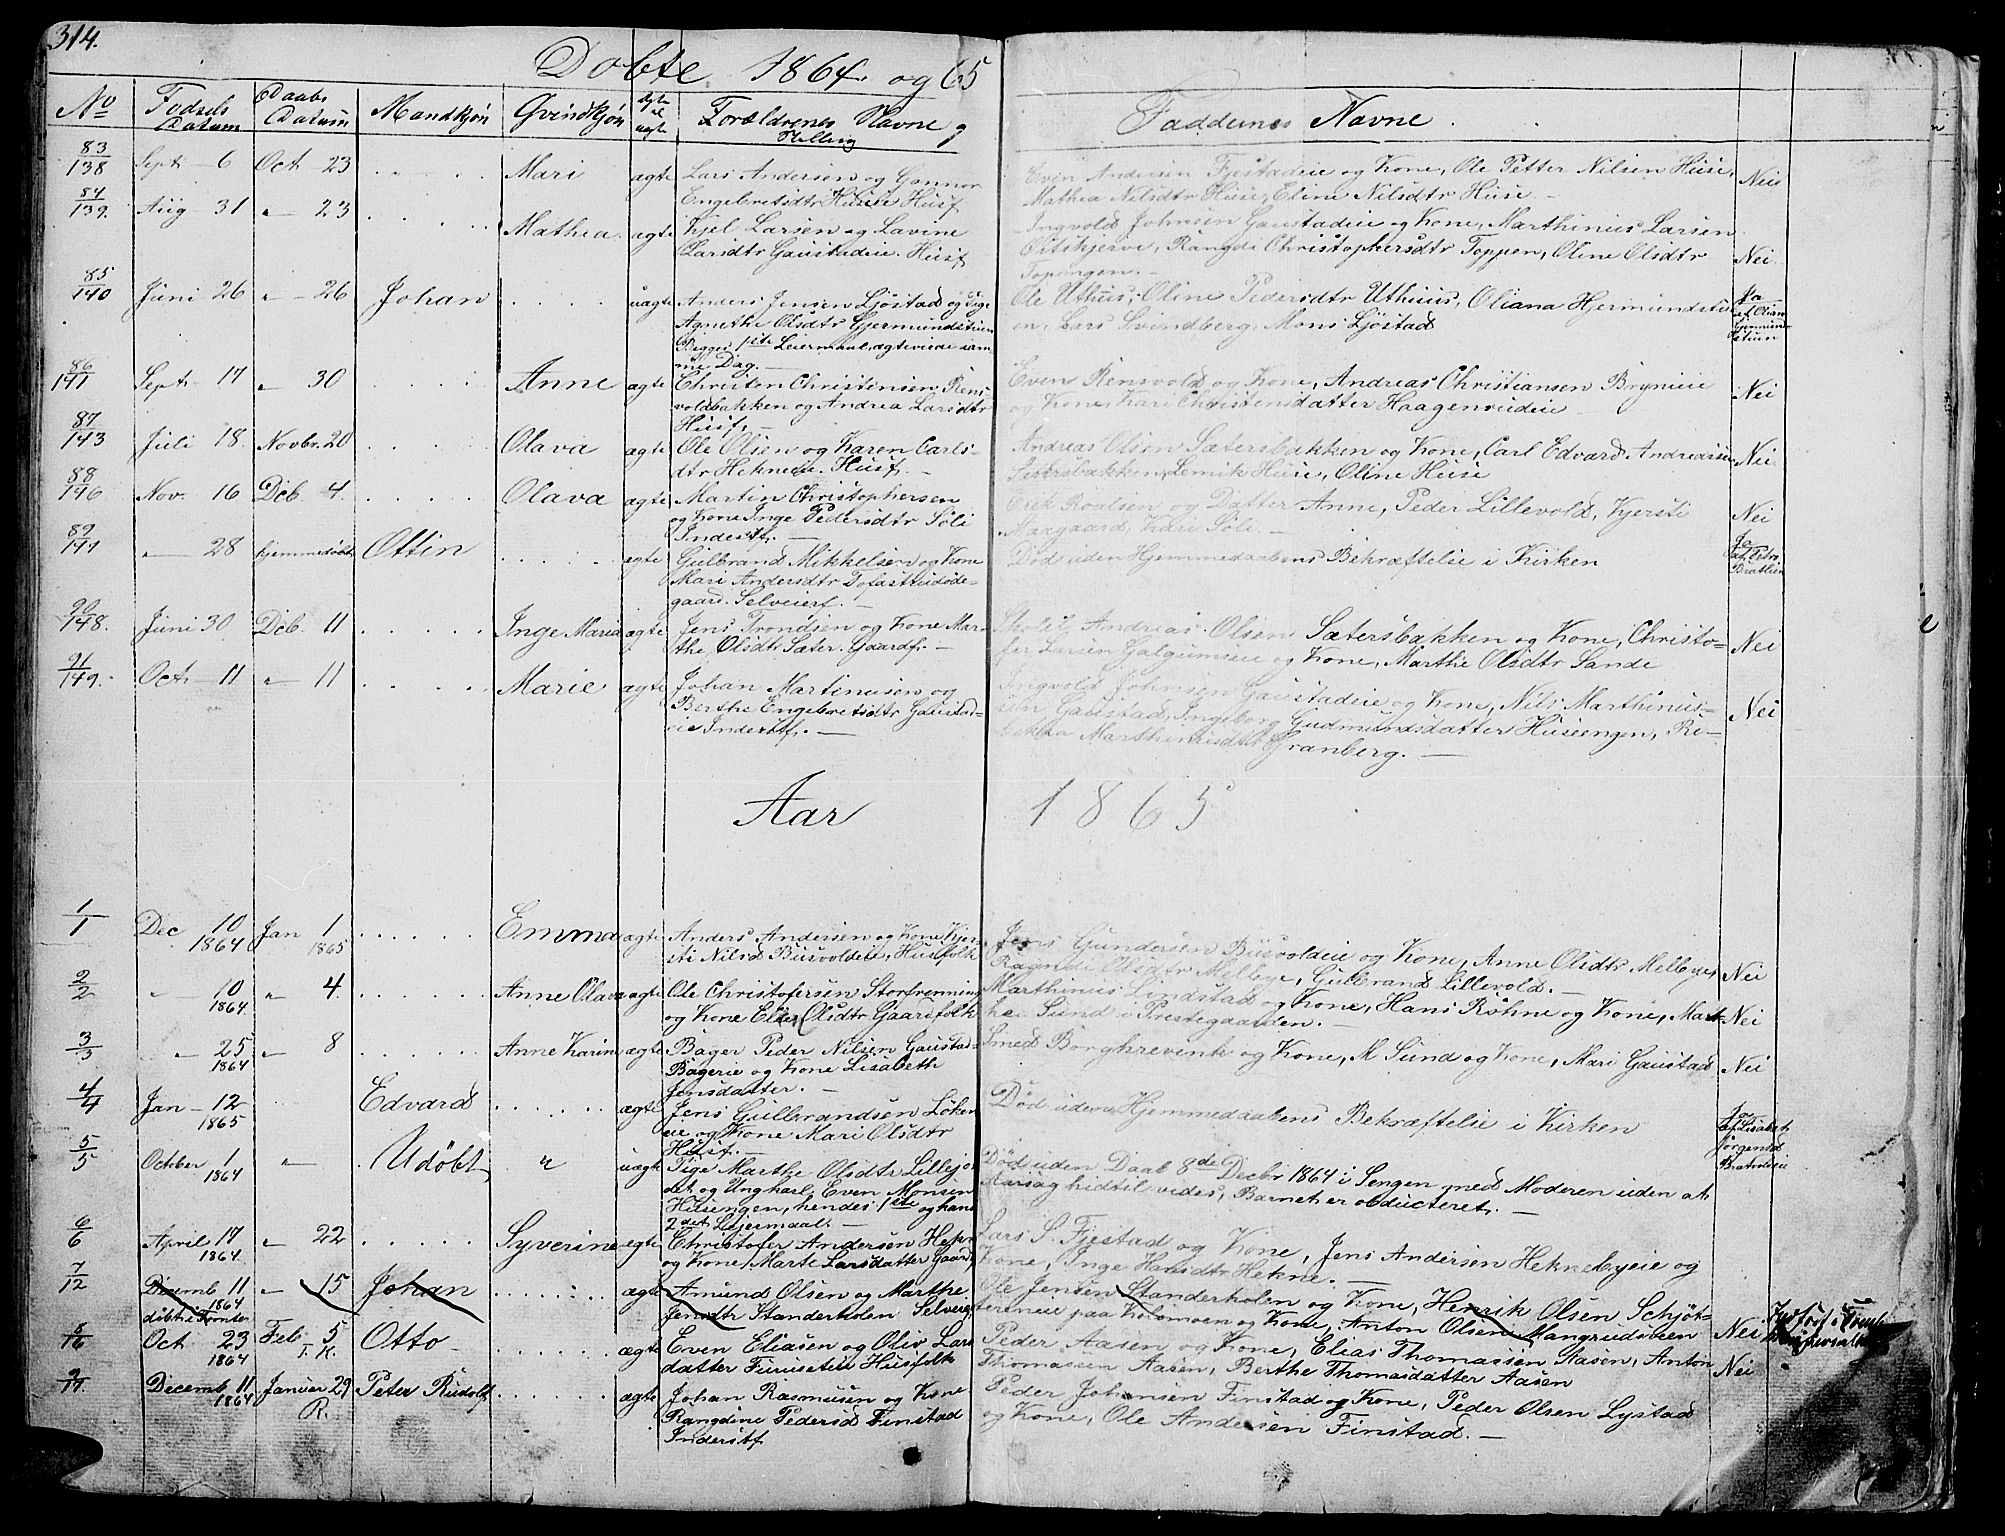 314.
Døbte 1864. og 65
No Fødsels Datum Daabs Datum Mandkjøn Qvindkjøn ægte el uægte Forældrenes Navne og Stilling Faddernes Navne
83/138 Sept 6 Oct 23 Mari ægte Lars Andersen og Gonnor Even Andersen Fjestadeie og Kone, Ole Petter Nilsen Huse, Nei
Engebretsdtr Husee Husf. Mathea Nilsdtr Huse, Eline Nilsdtr Huse
84/139. Aug 31 " 23 Mathea. ægte Kjel Larsen og Lavine Ingvold Johnsen Gaustadeie og Kone, Marthinus Larsen
Larsdtr Gaustadeie. Husf Rangdi Christophersdtr Toppen, Oline Olsdtr Nei
Topengen.
85/140 Juni 26 " 26 Johan uægte Anders Jensen Ljøstad og Pige Ole Uthus, Oline Pedersdtr Uthuus, Oliana Hjermundstu- Ja
Agnethe Olsdtr Gjermundstuen en, Lars Svindberg, Mons Ljøstad af Olian Gjermund-
Begges 1ste Leiermaal, ægteviede sam- stuen
me Dag.
86/141 Sept 17 " 30 Anne ægte Christen Christensen Rens- Even Rensvold og Kone, Andreas Christiansen Brynieie Nei
voldbakken og Andrea Larsdtr og Kone, Kari Christensdatter Haagensudeie
Husf.
87/143 Juli 18. Novbr. 20 Olava ægte Ole Olsen og Karen Carls- Andreas Olsen Sætersbakken og Kone, Carl Edvard Andreassen Nei
dtr Hekneeie. Husf. Sætersbakken, Lemik Huse, Oline Huse
88/146 Nov. 16 Dcb 4. Olava ægte Martin Christophersen Erik Roalsen og Datter Anne, Peder Lillevold, Kjersti Nei
og Kone Inge Pedersdtr Soli Aaagaard, Kari Soli.
Inderstf.
89/147 " 28 hjemmedøbt Ottin ægte Gulbrand Mikkelsen og Kone Død uden Hjemmedaabens Bekræftelse i Kirken Ja
Mari Andersdtr Tofastrudøde- af Petra Bratlien
gaard. Selveierf.
90/148. Juni 30 Dcb. 11 Inge Maria ægte Jens Trondsen og Kone Mar- Andreas Olsen Sætersbakken og Kone, Christo- Nei
the Olsdtr Sæter. Gaardf. fer Larsen Galgumseie og Kone, Marthe Olsdtr Sande
91/149. Oct 11 " 11 Marie ægte Johan Martinusen og Ingvold Johnsen Gaustadeie og Kone, Nils Marthinus- Nei
Berthe Engebretsdtr Gaustad- sen Gaustad, Ingeborg Gudmundsdatter Huseengen, Re-
eie Inderstf. bekka Marthinusdtr Granberg.
Aar 1865
1/1 Dec 10 1864 Jan 1 1865 Emma ægte Anders Andersen og Kone Kjer- Jens Gundersen Busvoldeie og Kone, Anne Olsdtr Mellbye, Nei
sti Nilsd Busvoldeie, Husfolk Ragndi Olsdtr Mellbye, Gulbrand Lillevold.
2/2 " 10 1864 " 4. Anne Olava ægte Ole Christofersen Storfrenning Marthinus Lindstad og Kone, Hans Røhne og Kone, Mart- Nei
og Kone Elise Olsdtr Gaardfolk he Sund i Prestegaarden.
3/3 " 25 1864 " 8 Anne Karine ægte Bager Peder Nilsen Gaustad- Smed Borgkrevink og Kone, M Sund og Kone, Mari Gaustad Nei
Bagerie og Kone Lisabeth
Jensdatter.
4/4 Jan 12 1865 Edvard ægte Jens Gulbrandsen Løken- Død uden Hjemmedaabens Bekræftelse i Kirken Ja
eie og Kone Mari Olsdtr af Lisabet
Husf. Jørgensd
5/5 October 1 1864 " Udøbt " uægt Pige Marthe Olsdtr Lillejor- Død uden Daab 8de Decbr 1864 i Sengen med Moderen uden at
det og Ungkarl Even Monsen Aarsag hidtil vides, Barnet er obducteret.
Husengen, hendes 1ste og hans
2det Leiermaal.
6/6 April 17 1864 " 22 Syverine ægte Christofer Andersen Hepr Lars S. Fjestad og Kone, Jens Andersen Heknebyeie og
og Kone Marte Larsdatter Gaardf Kone, Inge Hansdtr Hekne.
7/12 Decemb 11 1864 " 15 Johan ægte Amund Olsen og Marthe Ole Jensen Standerholen og Kone, Henrik Olsen Schjøt-
døbt i Tronter Jensdtr Standerholen Selveierf tereneie paa Kolomoen og Kone, Anton Olsen Mangrudsveen Nei
8/16 Oct 23 1864 Feb 5 T. K. Otto ægte Even Eliasen og Oliv Lars Peder Aasen og Kone, Elias Thomassen Aasen, Anton Nei
datter Furusetei Husfolk Thomassen Aasen, Berthe Thomasdatter Aasen
9/17. Decemb 11 1864 Januar 29 R. Peter Rudolf ægte Johan Rasmusen og Kone Peder Johansen Finstad og Kone, Peder Olsen Lystad
Rangdine Pedersd Finstad og Kone, Ole Andersen Finstad.
Inderstf